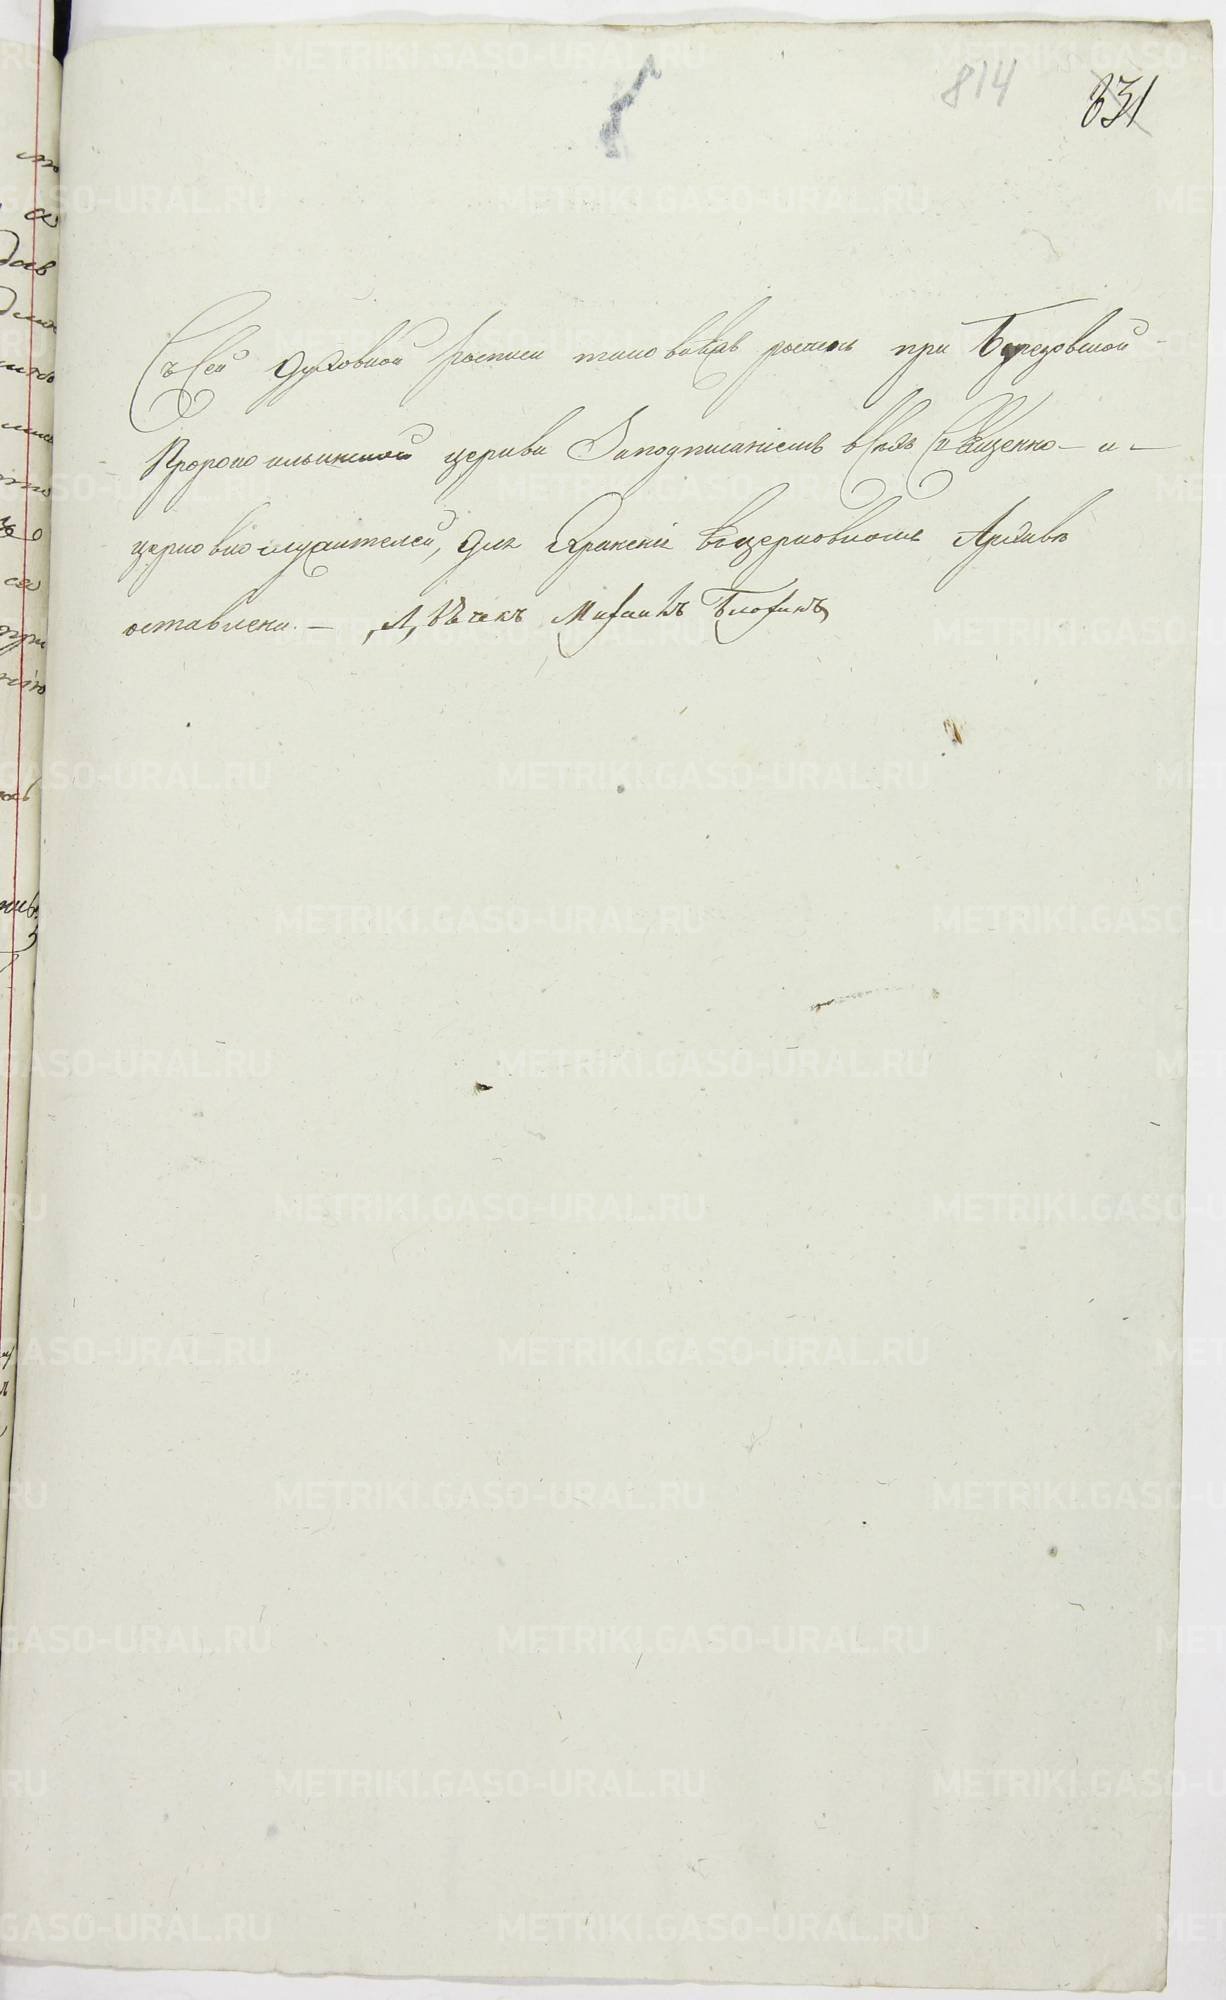 814 831
Съ Сей духовной росписи таковаяжъ роспись при Березовской
Пророко ильинской церкви За подписаніемъ всѣхъ Священно- и-
церковнослужителей, для Храненія въ церковномъ Архивѣ
оставлена. —
METRIKI.GASO-URAL.RU